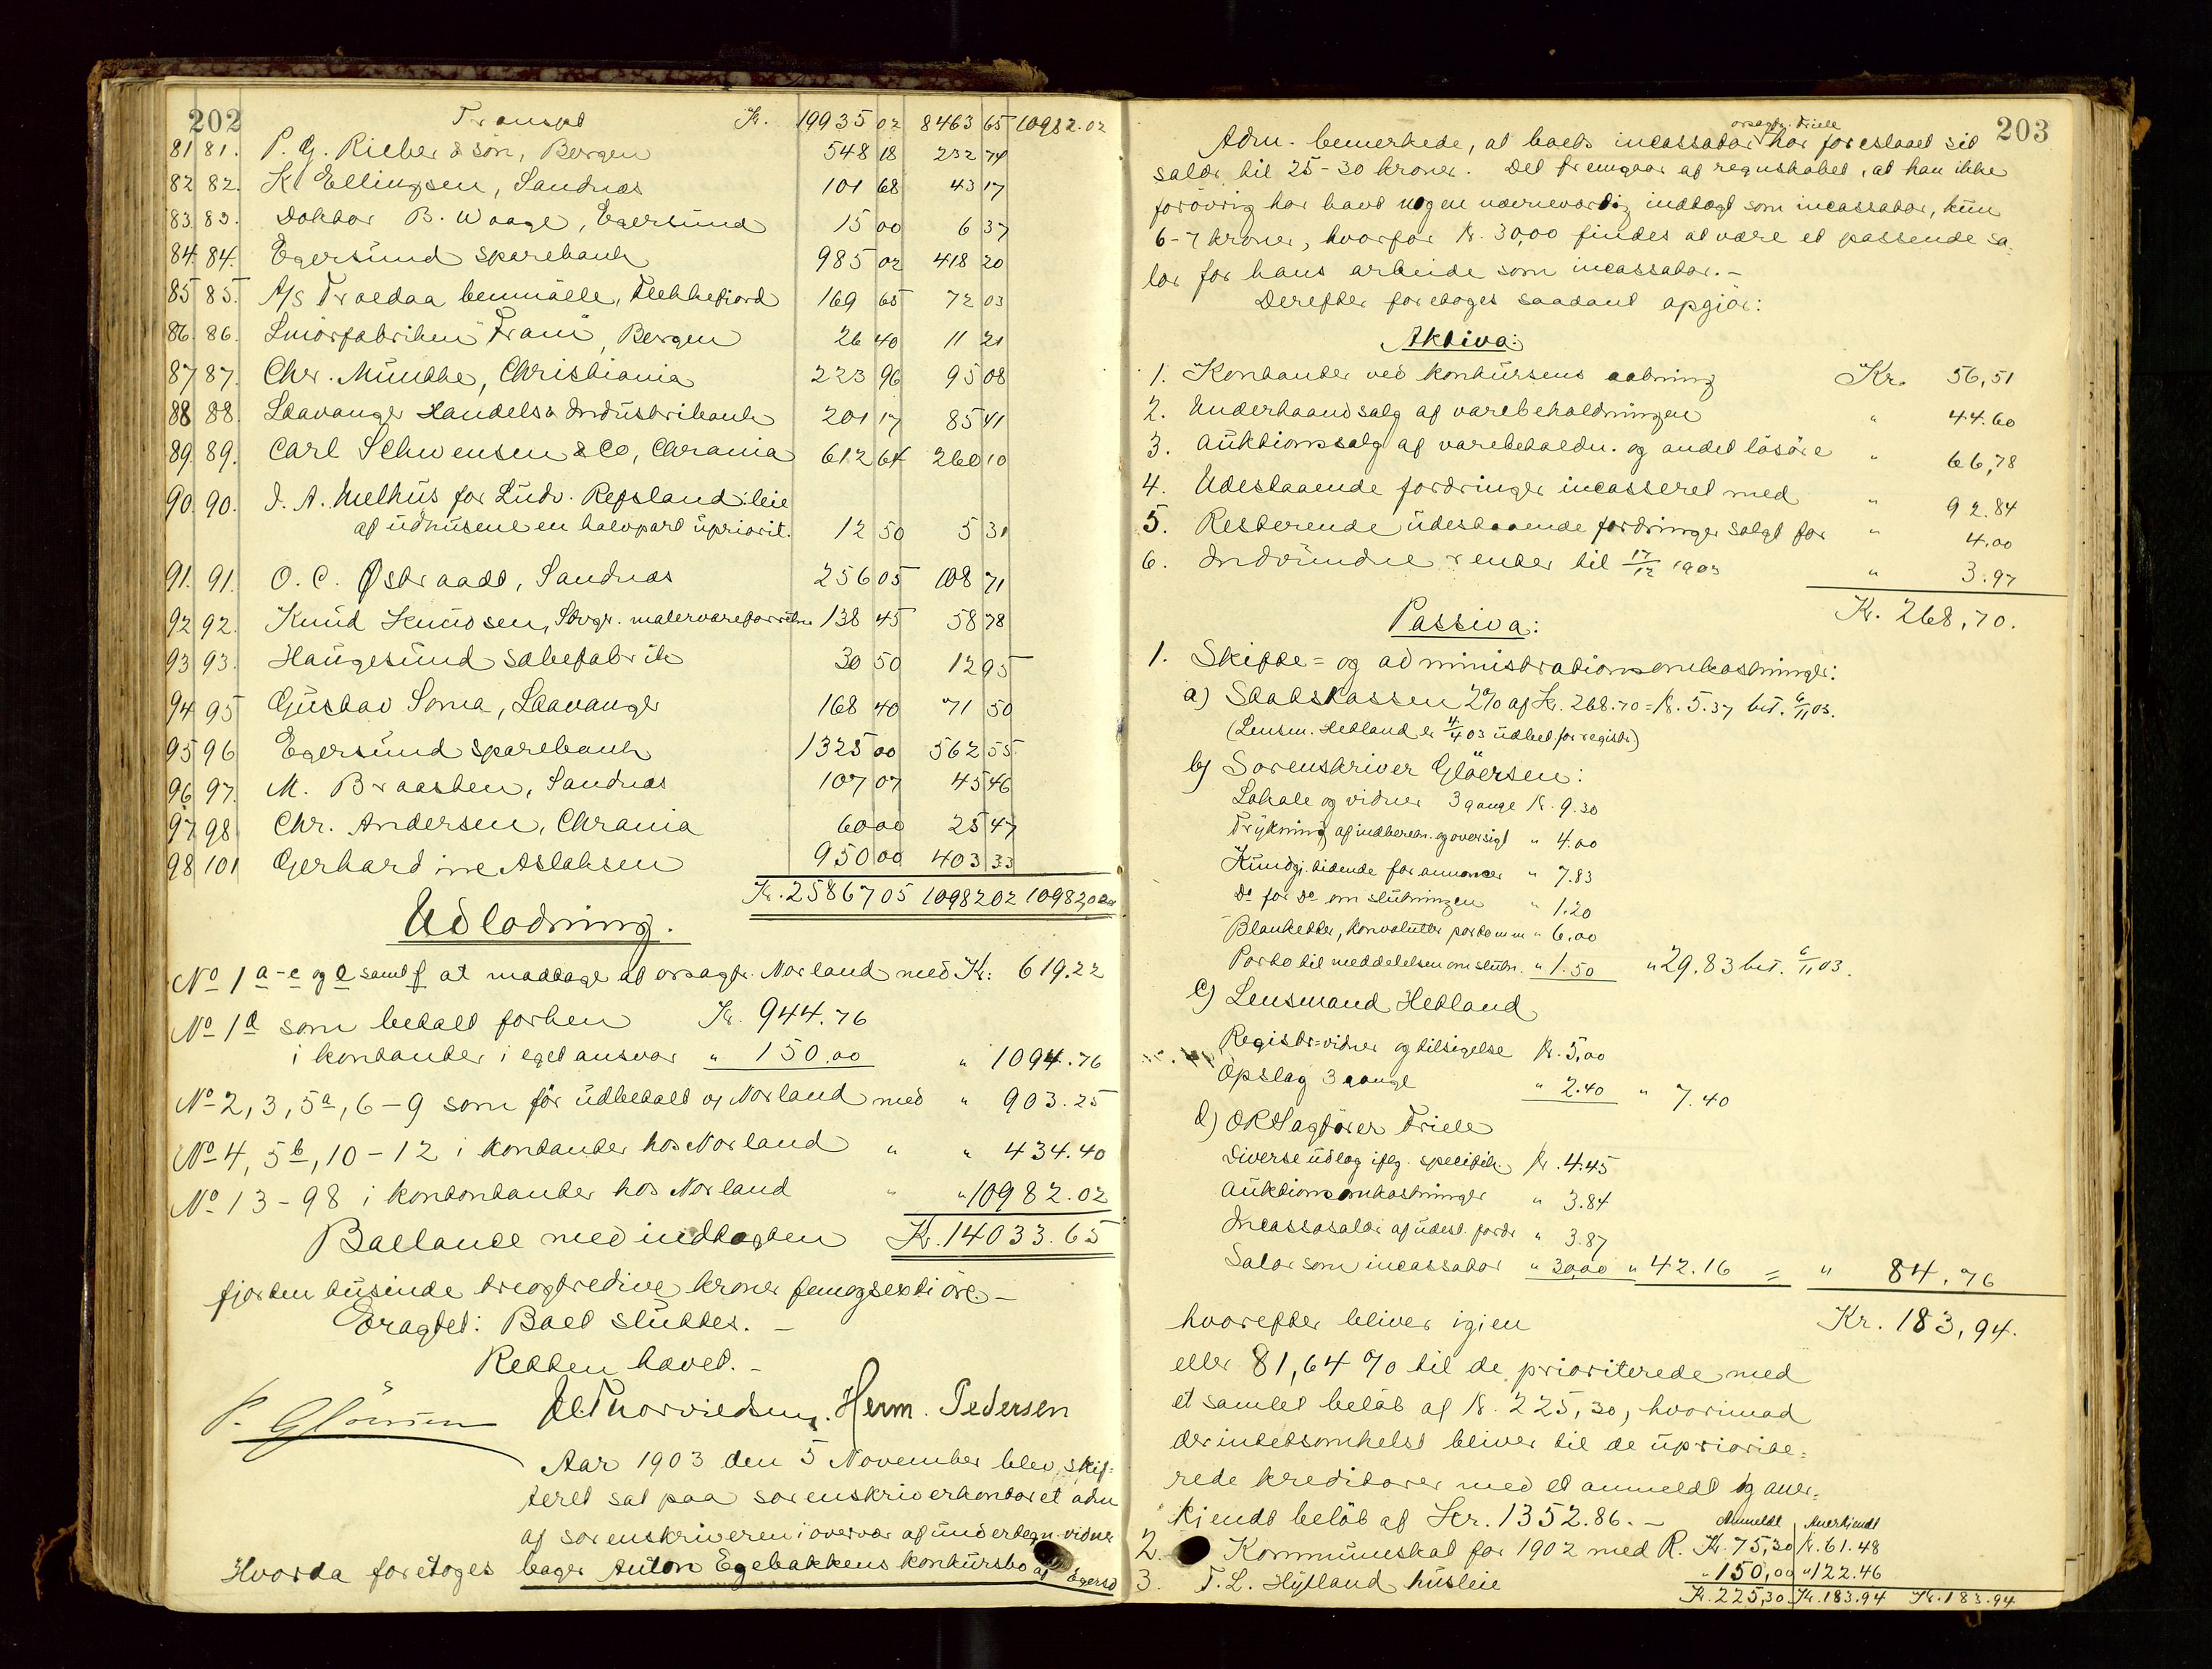 202
Transpt Kr. 19935 02 8463 65 10982.02
81 81. P. G. Rieber & søn, Bergen 548 18 232 74
82 82. K. Ellingsen, Sandnæs 101 68 43 17
83 83. Doktor B. Waage, Egersund 15 00 6 37
84 84. Egersund sparebank 985 02 418 20
85 85. A/S Trælåa benmölle, Flekkefjord 169 65 72 03
86. 86. Smörfabriken Fram, Bergen 26 40 11 21
87 87. Chr. Munthe, Christiania 223 96 95 08
88 88. Stavanger Handels & Industribank 201 17 85 41
89. 89. Carl Schwensen & Co, Chrania 612 64 260 10
90. 90. I. A. Melhus for Ludv. Refsland: leie
af udhusene en halvpart upriorit. 12 50 5 31
91. 91. O. C. Østraadt, Sandnæs 256 05 108 71
92 92. Knud Knudsen, Stvgr. malervareforretn. 138 45 58 78
93 93. Haugesund sæbefabrik 30 50 12 95
94 95 Gustav Soma, Stavanger 168 40 71 50
95 96 Egersund sparebank 1325 00 562 55
96 97. M. Braasten, Sandnæs 107 07 45 46
97 98 Chr. Andersen, Chrania 60 00 25 47
98 101 Gerhardine Aslaksen 950 00 403 33
Kr. 25867 05 10982 02 10982,02
Udlodning.
No 1 a-c og e samt f at modtage af orsagfr. Norland med Kr: 619.22
No 1 d som betalt forhen Kr. 944.76
i kontanter i eget ansvar " 150.00 " 1094.76
No 2, 3, 5a, 6-9 som før udbetalt af Norland med " 903.25
No 4, 5b, 10-12 i kontanter hos Norland " " 434.40
No 13-98 i kontontanter hos Norland " " 10982.02
Ballance med indtægten Kr. 14033.65
fjorten tusinde treogtredive kroner femogsexti öre.-
Eragtet: Boet sluttes. -
Retten hævet. -
P. Glörsen Herm. Pedersen
Aar 1903 den 5 November blev skif-
teret sat paa sorenskriverkontoret adm
af sorenskriveren i overvær af undertegn. vidner
Hvorda foretoges bager Anton Egebakkens konkursbo af Egersd
203
Adm. bemerkede, at boets incassator orsagfr. Friele har foreslaaet sit
salær til 25-30 kroner. Det fremgaar af regnskabet, at han ikke
forövrig har havt nogen nævneværdig indtægt som incassator, kun
6-7 kroner, hvorfor Kr. 30,00 findes at være et passende sa-
lær for hans arbeide som incassator.-
Derefter foretoges saadant opgjör:
Aktiva:
1. Kontanter ved konkursens aabning Kr. 56,51
2. Underhaandsalg af varebeholdningen " 44.60
3. Auktionssalg af varebeholdn. og andet lösöre " 66,78
4. Udestaaende fordringer incasseret med " 92.84
5. Resterende udestaaende fordringer solgt for " 4.00
6. Indvundne renter til 17/12 1903 " 3.97
Kr. 268,70.
Passiva:
1. Skifte= og administrationsomkostninger:
a) Statskassen 2% af Kr. 268.70 = Kr. 5.37 bet. 6/11 03.
(Lensm. Hetland er 4/4 03 udbet for registr.)
b) Sorenskriver Glöersen:
Lokale og vidner 3 gange Kr. 9.30
Trykning af indberetn. og oversigt " 4.00
Kundgj. tidende for annoncer " 7.83
Do for Do om slutningen " 1.20
Blanketter, konvolutter porto m m " 6.00
Porto til meddelelsen om slutn. " 1.50 " 29.83 bet. 6/11 03.
c) Lensmand Hetland
Registr=vidner og tilsigelse Kr. 5,00
Opslag 3 gange " 2.40 " 7.40
d) ORSagförer Friele
Diverse udlæg iflg. specifik. Kr. 4.45
Auktionsomkostninger " 3.84
Incassosalær af udest. fordr " 3.87
Salær som incassator " 30,00 " 42.16 = " 84,76
hvorefter bliver igjen Kr. 183,94.
eller 81,64 % til de prioriterede med
et samlet belöb af Kr. 225,30, hvorimod
der intetsomhelst bliver til de upriorite=
rede kreditorer med et anmeldt og aner=
kjendt belöb af Kr. 1352.86. - Anmeldt Anerkjendt
2. Kommuneskat for 1902 med R. Kr. 75,30 Kr. 61.48
3. T. L. Hytland husleie " 150,00 " 122.46
Kr. 225,30 Kr. 183.94 Kr. 183.94